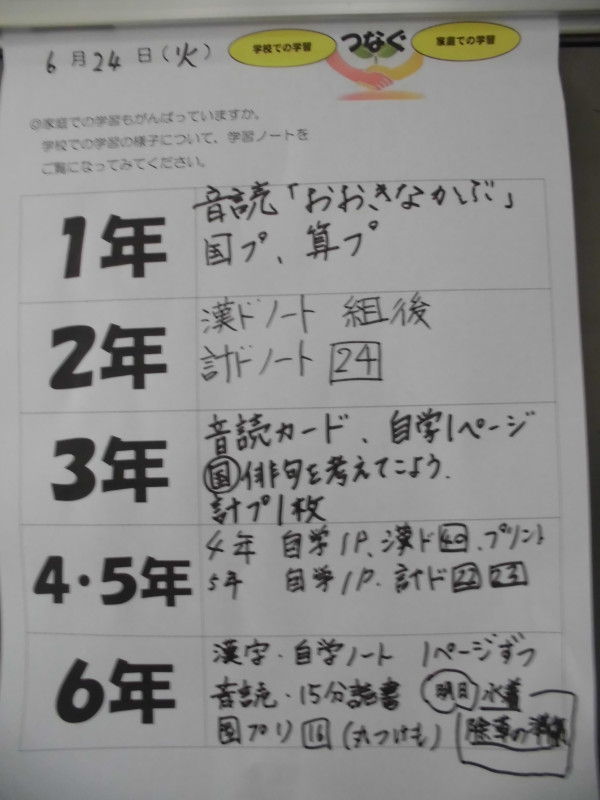 6月24日（火）
学校での学習
つなぐ
家庭での学習
◎家庭での学習もがんばっていますか。
学校での学習の様子について、学習ノートを
ご覧になってみてください。
1年
音読「おおきなかぶ」
国プ、算プ
2年
漢ドノート 組後
計ドノート 24
3年
音読カード、自学1ページ
国 俳句を考えてこよう.
計プ1枚
4・5年
4年 自学1P、漢ド40、プリント
5年 自学1P. 計ド22 23
6年
漢字・自学ノート 1ページずつ
音読・15分読書 明日 水着
国プリ 16 (丸つけも) 除草の準備